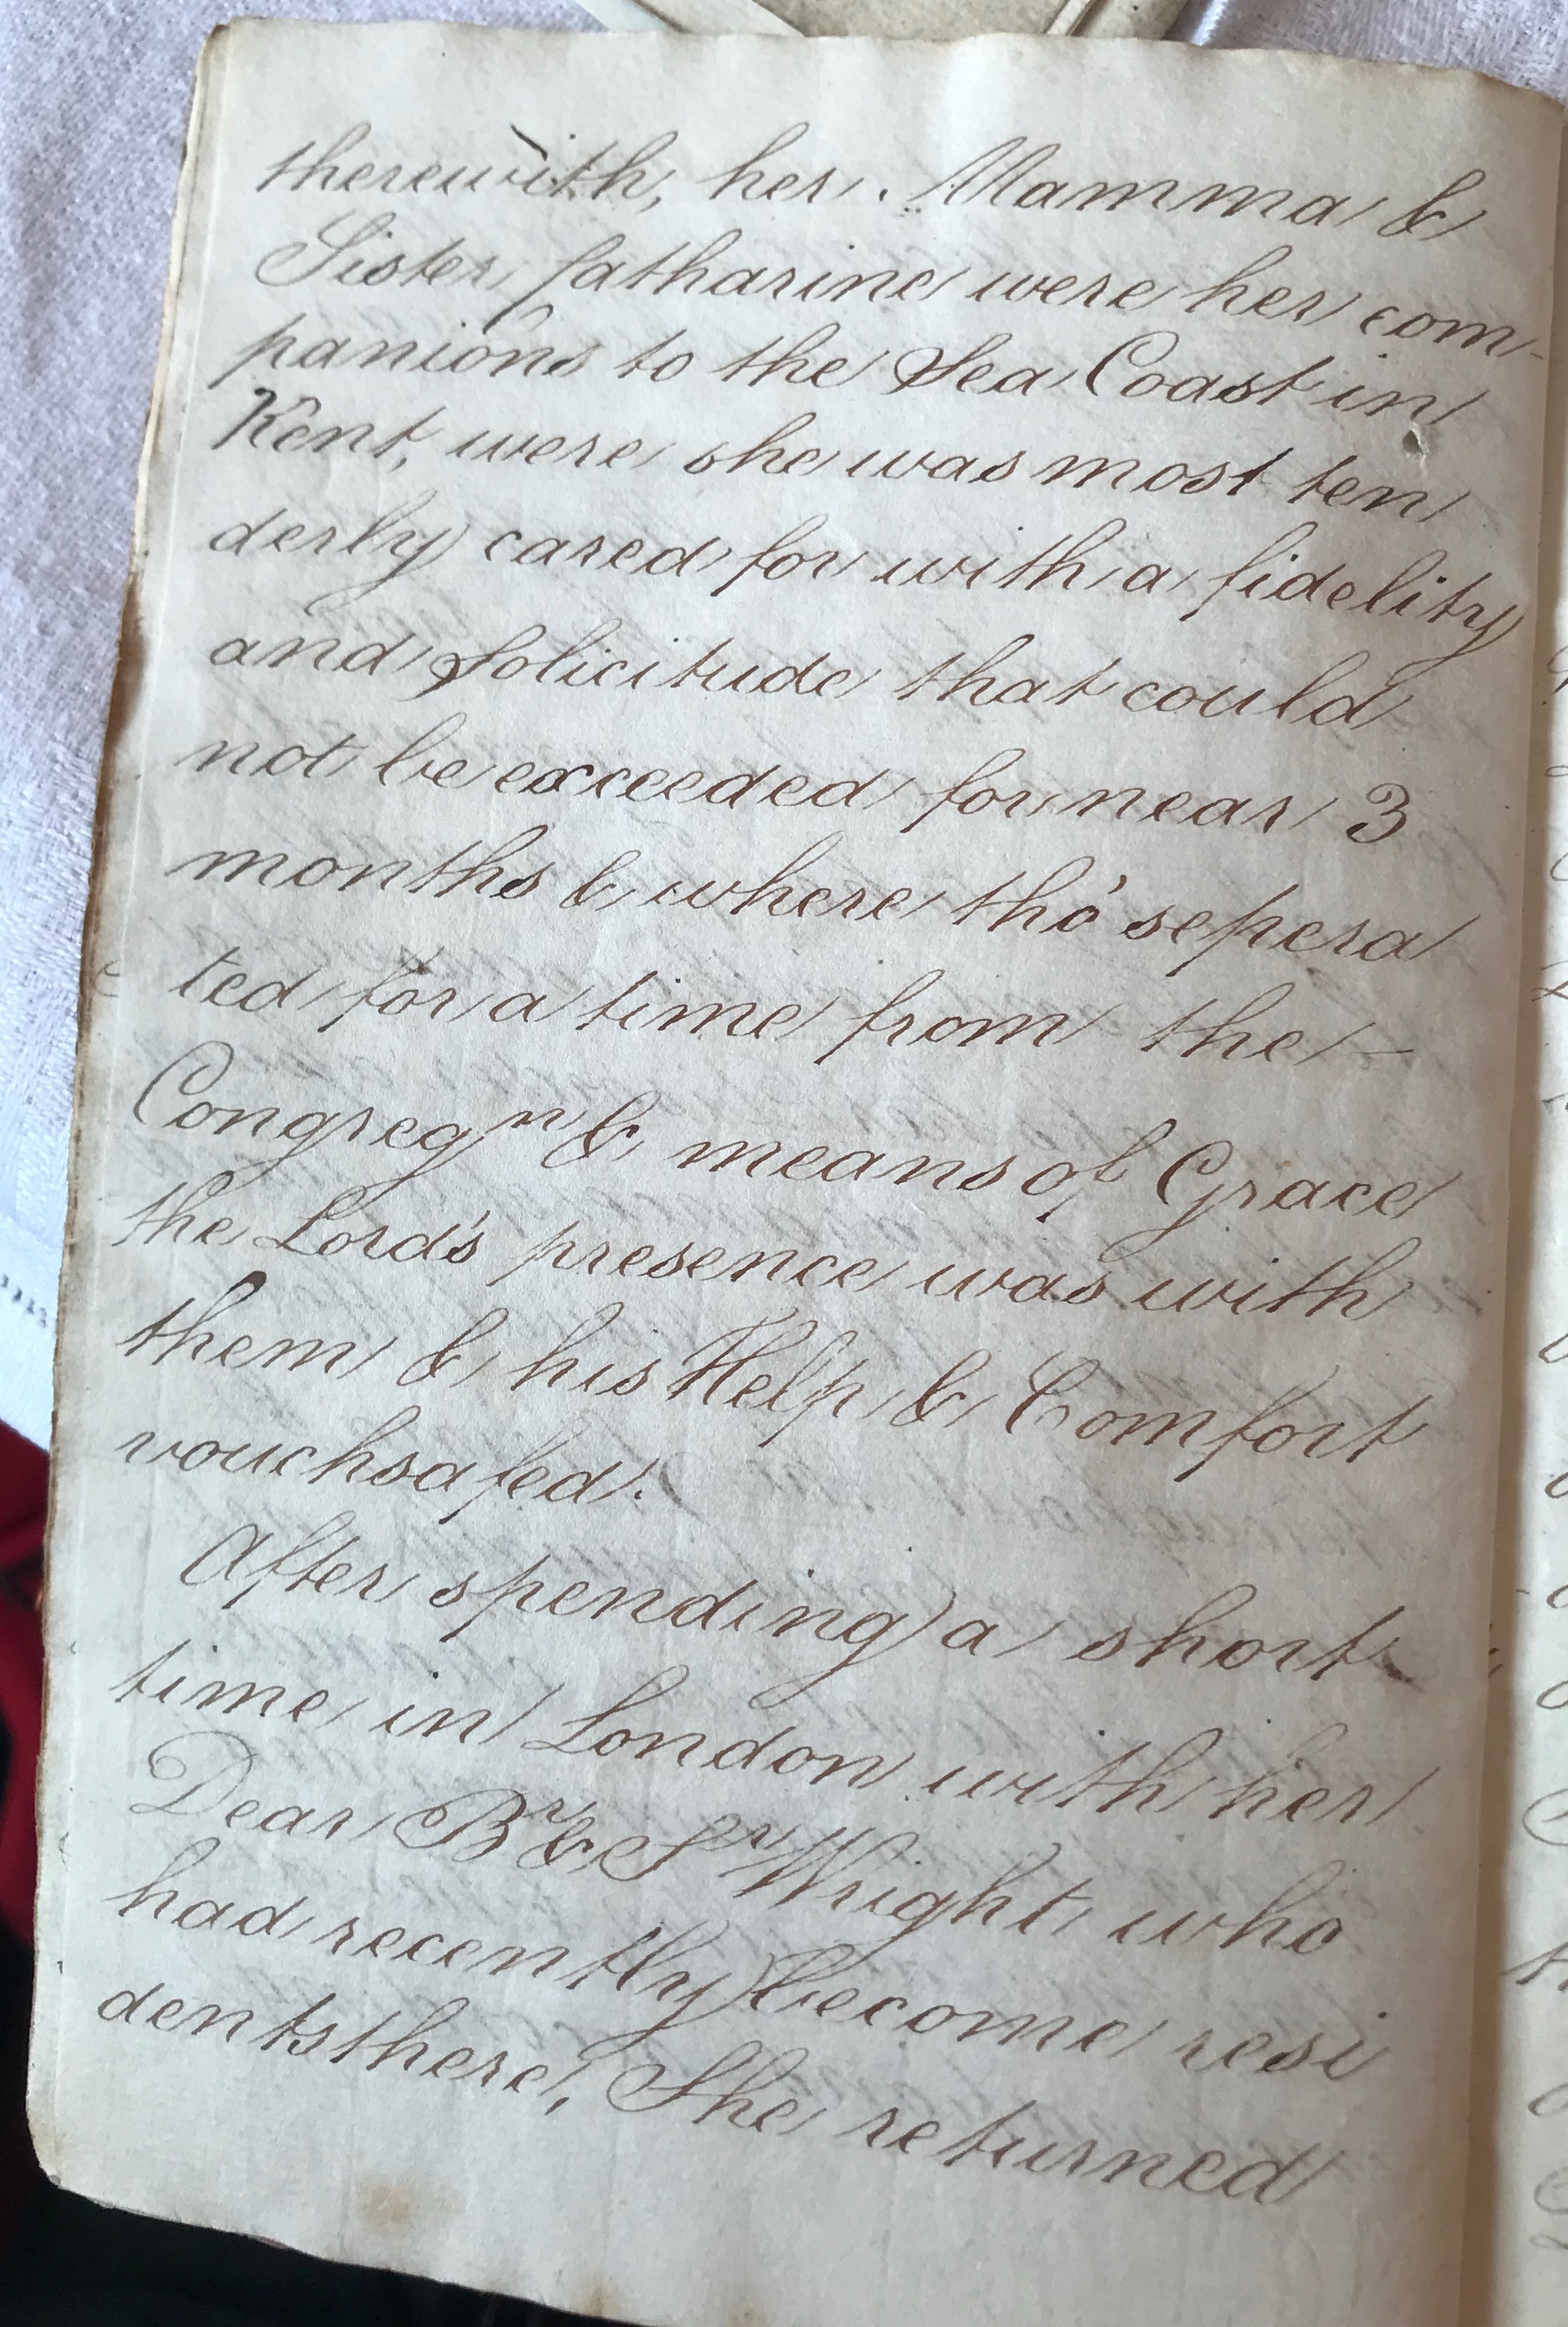 therewith, her. Mamma &
Sister Catharine were her com-
panions to the Sea Coast in
Kent, were she was most ten
derly cared for with a fidelity
and Solicitude that could
not be exceeded for near 3
months & where tho' sepera
ted for a time from the -
Congregⁿ & means of Grace
the Lord's presence was with
them & his Help & Comfort
vouchsafed.
After spending a short
time in London with her
Dear Bʳ & Sʳ Wright, who
had recently become resi
dents there, She returned